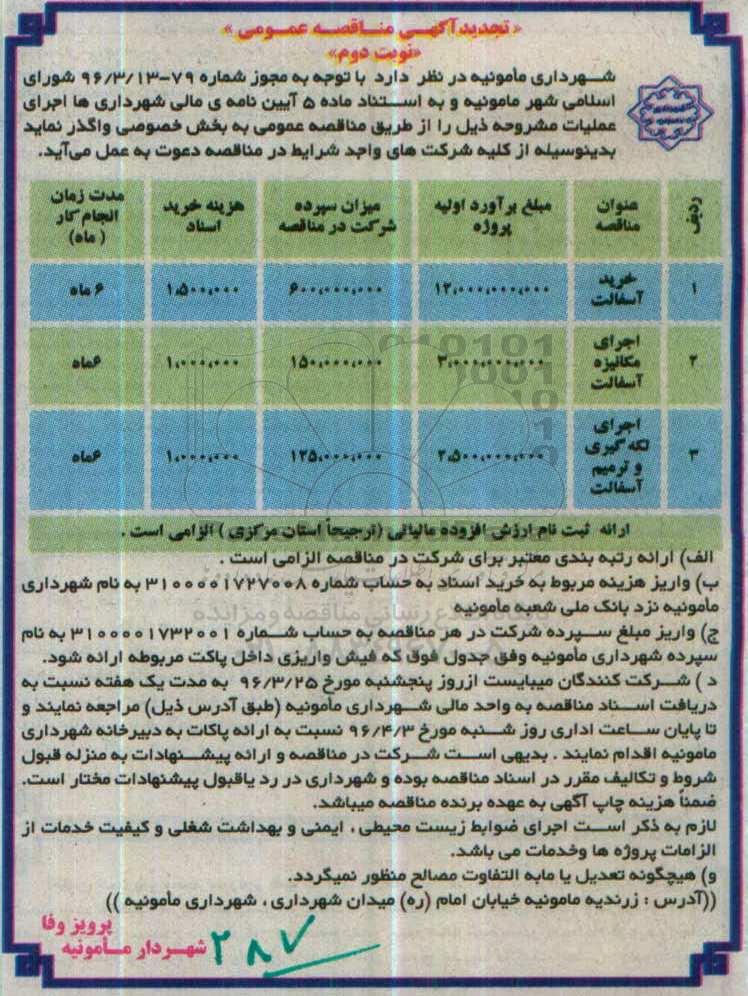 «تجدید آگهی مناقصه عمومی»
«نوبت دوم»
شهرداری مأمونیه در نظر دارد با توجه به مجوز شماره ۷۹-۹۶/۳/۱۳ شورای
اسلامی شهر مامونیه و به استناد ماده ۵ آیین نامه ی مالی شهرداری ها اجرای
عملیات مشروحه ذیل را از طریق مناقصه عمومی به بخش خصوصی واگذر نماید
بدینوسیله از کلیه شرکت های واجد شرایط در مناقصه دعوت به عمل می‌آید.
ردیف عنوان مناقصه مبلغ برآورد اولیه پروژه میزان سپرده شرکت در مناقصه هزینه خرید اسناد مدت زمان انجام کار (ماه)
۱ خرید آسفالت ۱۲،۰۰۰،۰۰۰،۰۰۰ ۶۰۰،۰۰۰،۰۰۰ ۱،۵۰۰،۰۰۰ ۶ ماه
۲ اجرای مکانیزه آسفالت ۳،۰۰۰،۰۰۰،۰۰۰ ۱۵۰،۰۰۰،۰۰۰ ۱،۰۰۰،۰۰۰ ۶ماه
۳ اجرای لکه گیری و ترمیم آسفالت ۲،۵۰۰،۰۰۰،۰۰۰ ۱۲۵،۰۰۰،۰۰۰ ۱،۰۰۰،۰۰۰ ۶ماه
ارائه ثبت نام ارزش افزوده مالیاتی (ترجیحاً استان مرکزی) الزامی است .
الف) ارائه رتبه بندی معتبر برای شرکت در مناقصه الزامی است .
ب) واریز هزینه مربوط به خرید اسناد به حساب شماره ۳۱۰۰۰۰۱۷۲۷۰۰۸ به نام شهرداری
مأمونیه نزد بانک ملی شعبه مأمونیه
ج) واریز مبلغ سپرده شرکت در هر مناقصه به حساب شماره ۳۱۰۰۰۰۱۷۳۲۰۰۱ به نام
سپرده شهرداری مأمونیه وفق جدول فوق که فیش واریزی داخل پاکت مربوطه ارائه شود.
د ) شرکت کنندگان میبایست ازروز پنجشنبه مورخ ۹۶/۳/۲۵ به مدت یک هفته نسبت به
دریافت اسناد مناقصه به واحد مالی شهرداری مأمونیه (طبق آدرس ذیل) مراجعه نمایند و
تا پایان ساعت اداری روز شنبه مورخ ۹۶/۴/۳ نسبت به ارائه پاکات به دبیرخانه شهرداری
مامونیه اقدام نمایند . بدیهی است شرکت در مناقصه و ارائه پیشنهادات به منزله قبول
شروط و تکالیف مقرر در اسناد مناقصه بوده و شهرداری در رد یاقبول پیشنهادات مختار است.
ضمناً هزینه چاپ آگهی به عهده برنده مناقصه میباشد.
لازم به ذکر است اجرای ضوابط زیست محیطی ، ایمنی و بهداشت شغلی و کیفیت خدمات از
الزامات پروژه ها وخدمات می باشد.
و) هیچگونه تعدیل یا مابه التفاوت مصالح منظور نمیگردد.
((آدرس : زرندیه مامونیه خیابان امام (ره) میدان شهرداری ، شهرداری مأمونیه ))
پرویز وفا
شهردار مأمونیه
۲۸۷